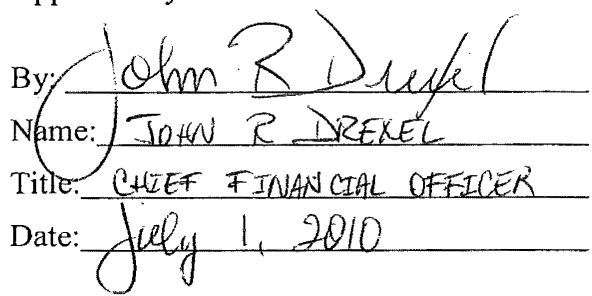 By: John R Drexel
Name: JOHN R DREXEL
Title: CHIEF FINANCIAL OFFICER
Date: July 1, 2010